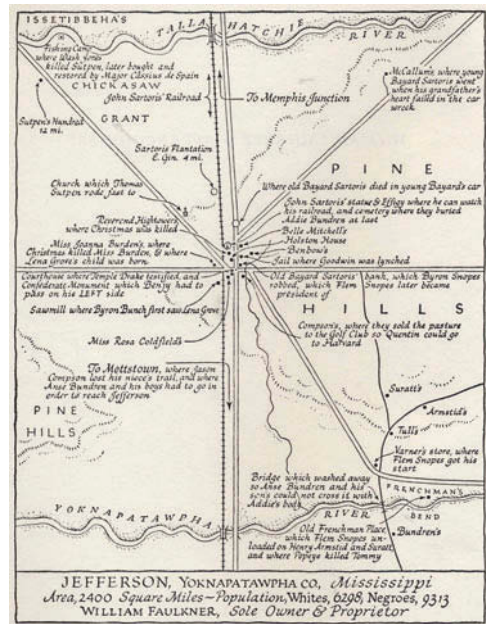 ISSETIBBEHA'S
TALLAHATCHIE
RIVER
Fishing Camp
where Wash Jones
killed Sutpen, later bought and
restored by Major Cassius de Spain
CHICKASAW
GRANT
John Sartoris' Railroad
To Memphis Junction
McCallum's, where young
Bayard Sartoris went
when his grandfather's
heart failed in the car
wreck
Sutpen's Hundred
12 mi.
Sartoris Plantation
& Gin. 4 mi.
PINE
Church which Thomas
Sutpen rode fast to
Where old Bayard Sartoris died in young Bayard's car
John Sartoris' statue & Effigy where he can watch
his railroad, and cemetery where they buried
Addie Bundren at last
Reverend Hightower's
where Christmas was killed
Belle Mitchell's
Holston House
Benbow's
Jail where Goodwin was lynched
Miss Joanna Burden's, where
Christmas killed Miss Burden, & where
Lena Grove's child was born.
Courthouse where Temple Drake testified, and
Confederate Monument which Benjy had to
pass on his LEFT side
Old Bayard Sartoris' bank, which Byron Snopes
robbed, which Flem Snopes later became
president of
HILLS
Sawmill where Byron Bunch first saw Lena Grove
Compson's, where they sold the pasture
to the Golf Club so Quentin could go
to Harvard
Miss Rosa Coldfield's
To Mottstown, where Jason
Compson lost his niece's trail, and where
Anse Bundren and his boys had to go in
order to reach Jefferson
PINE
HILLS
Suratt's
Armstid's
Tull's
Varner's store, where
Flem Snopes got his
start
Bridge which washed away
so Anse Bundren and his
sons could not cross it with
Addie's body
FRENCHMAN'S
BEND
YOKNAPATAWPHA
RIVER
Old Frenchman Place,
which Flem Snopes un-
loaded on Henry Armstid and Suratt,
and where Popeye killed Tommy
Bundren's
JEFFERSON, YOKNAPATAWPHA CO, Mississippi
Area, 2400 Square Miles – Population, Whites, 6298; Negroes, 9313
WILLIAM FAULKNER, Sole Owner & Proprietor